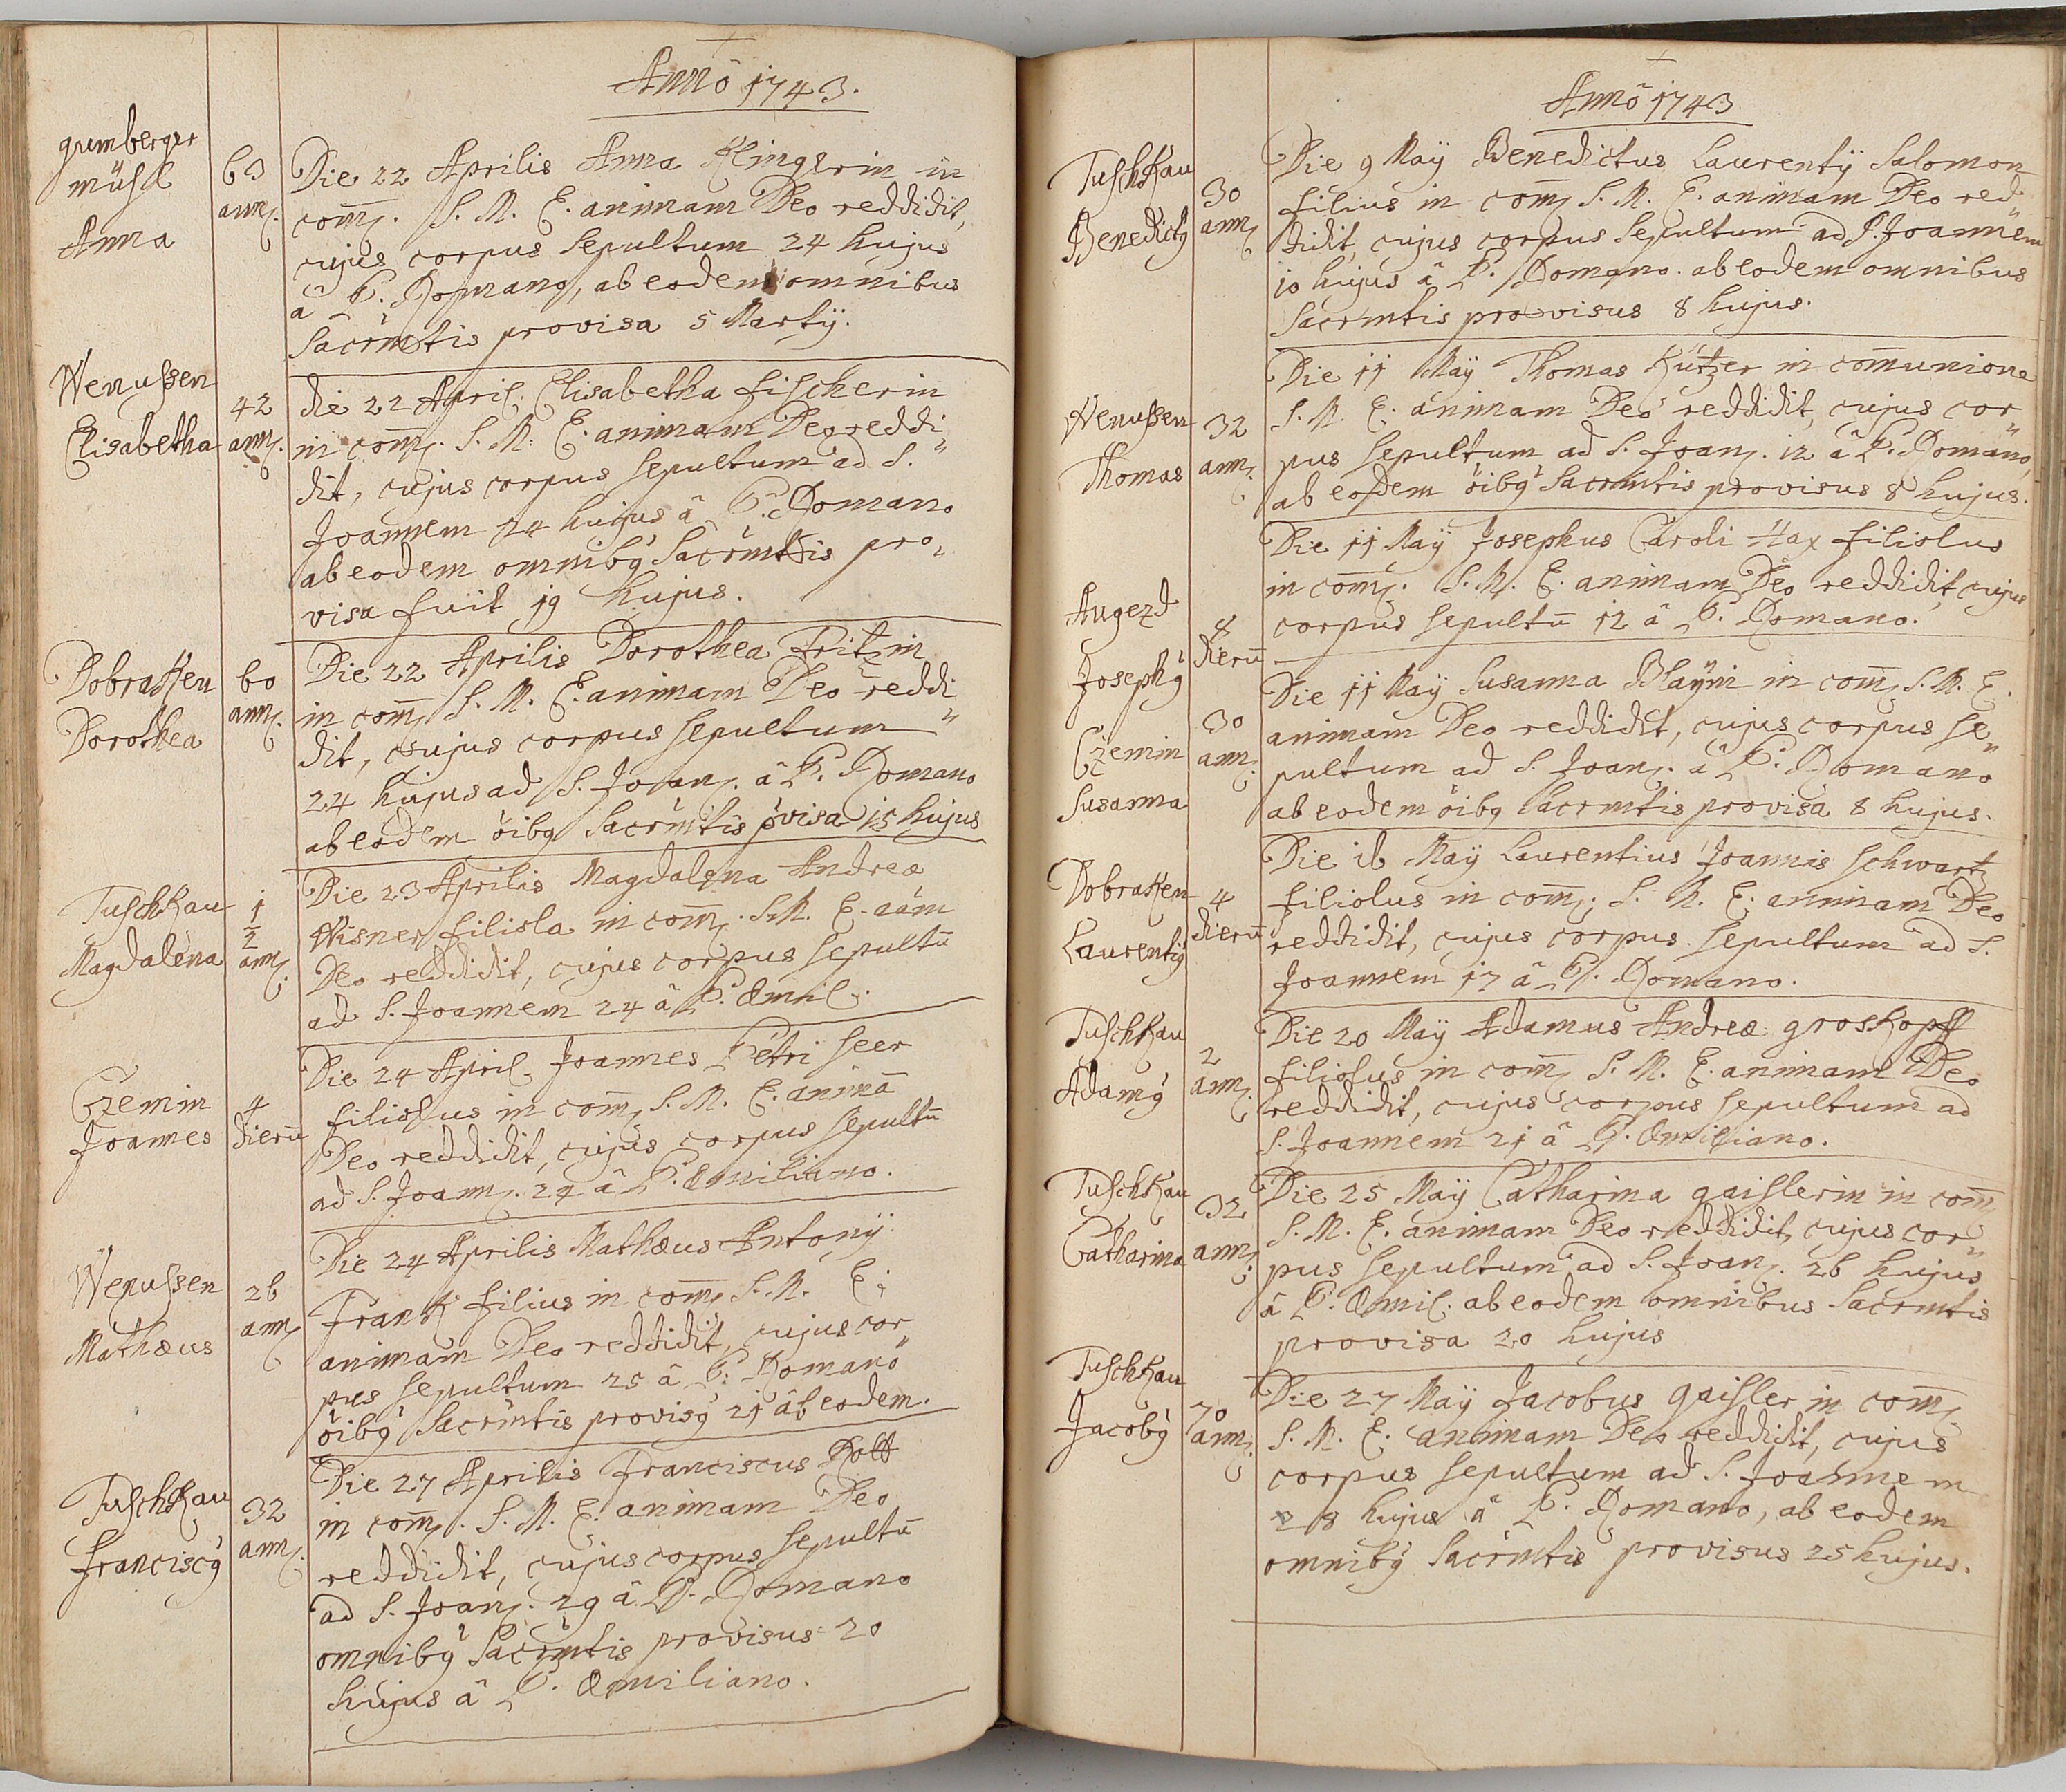 Annô 1743.
grumberger
mühl
Anna
63
ann.
Die 22 Aprilis Anna Klingerin in
com. S. M. E. animam Deo reddidit,
cujus corpus sepultum 24 hujus
â P. Romano, ab eodem omnibus
Sacrmtis provisa 5 Martÿ.
Wenussen
Elisabetha
42
ann.
die 22 April. Elisabetha fischerin
in com. S. M. E. animam Deo reddi„
dit, cujus corpus sepultum ad S.
Joannem 24 hujus â P. Romano
ab eodem omnibq Sacrmtis pro„
visa fuit 19 hujus.
Dobraken
Dorothea
60
ann.
Die 22 Aprilis Dorothea Fritzin
in com. S. M. E. animam Deo reddi„
dit, cujus corpus sepultum
24 hujus ad S. Joan. â P. Romano
ab eodem oibq Sacrmtis pvisa 15 hujus
Tuschkau
Magdalena
1
2
ann.
Die 23 Aprilis Magdalena Andreæ
Wisner filiola in com. S. M. E. aam
Deo reddidit, cujus corpus sepultu
ad S. Joannem 24 â P. Æmil.
Czemin
Joannes
4
dieru
Die 24 April. Joannes Petri seer
filiolus in com. S. M. E. anima
Deo reddidit, cujus corpus sepultu
ad S. Joann. 24 â P. Æmiliano.
Wenussen
Mathæus
26
ann.
Die 24 Aprilis Mathæus Antonÿ
Frank filius in com. S. M. E.
animam Deo reddidit, cujus cor„
pus sepultum 25 â P. Romano
oibq Sacrmtis provisq 21 ab eodem.
Tuschkau
franciscq
32
ann.
Die 27 Aprilis Franciscus Rott
in com. S. M. E. animam Deo
reddidit, cujus corpus sepultu
ad S. Joan. 29 â P. Romano
omnibq Sacrmtis provisus 20
hujus â P. Æmiliano.
Annô 1743
Tuschkau
Benedictq
30
ann.
Die 9 Maÿ Benedictus Laurentÿ Salomon
filius in com. S. M. E. animam Deo red„
didit, cujus corpus sepultum ad S. Joannem
10 hujus â P. Romano. ab eodem omnibus
Sacrmtis provisus 8 hujus.
Wenussen
Thomas
32
ann.
Die 11 Maÿ Thomas Kützer in comunione
S. M. E. animam Deo reddidit, cujus cor„
pus sepultum ad S. Joan. 12 â P. Romano,
ab eodem oibq Sacrmtis provisus 8 hujus.
Augezd
Josephq
8
dieru
Die 11 Maÿ Josephus Caroli Hax filiolus
in com. S. M. E. animam Deo reddidit, cujus
corpus sepultu 12 â P. Romano.
Czemin
Susanna
30
ann.
Die 11 Maÿ Susanna Blaÿin in com. S. M. E.
animam Deo reddidit, cujus corpus se„
pultum ad S. Joan. â P. Romano
ab eodem oibq Sacrmtis provisa 8 hujus.
Dobraken
Laurentiq
4
dieru
Die 16 Maÿ Laurentius Joannis schwartz
filiolus in com. S. M. E. animam Deo
reddidit, cujus corpus sepultum ad S.
Joannem 17 â P. Romano.
Tuschkau
Adamq
2
ann.
Die 20 Maÿ Adamus Andreæ groskopff
filiolus in com. S. M. E. animam Deo
reddidit, cujus corpus sepultum ad
S. Joannem 21 â P. Æmiliano.
Tuschkau
Catharina
32
ann.
Die 25 Maÿ Catharina gaislerin in com.
S. M. E. animam Deo reddidit, cujus cor„
pus sepultum ad S. Joan. 26 hujus
â P. Æmil. ab eodem omnibus Sacrmtis
provisa 20 hujus
Tuschkau
Jacobq
70
ann.
Die 27 Maÿ Jacobus gaisler in com.
S. M. E. animam Deo reddidit, cujus
corpus sepultum ad S. Joannem
28 hujus â P. Romano, ab eodem
omnibq Sacrmtis provisus 25 hujus.